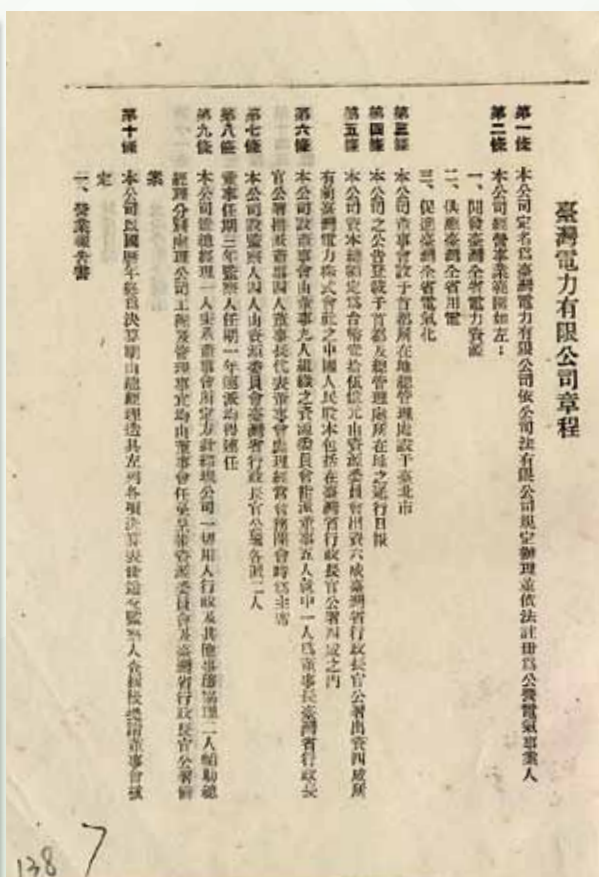 臺灣電力有限公司章程
第一條 本公司定名爲臺灣電力有限公司依公司法有限公司規定辦理並依法註冊爲公營電氣事業人
第二條 本公司經營事業範圍如左：
一、開發臺灣全省電力資源
二、供應臺灣全省用電
三、促進臺灣全省電氣化
第三條 本公司董事會設于首都所在地總管理處設于臺北市
第四條 本公司之公告登載于首都及總管理處所在地之通行日報
第五條 本公司資本總額定爲台幣壹拾伍億元由資源委員會出資六成臺灣省行政長官公署出資四成所
有前臺灣電力株式會社之中國人民股本包括在臺灣省行政長官公署四成之內
第六條 本公司設董事會由董事九人組織之資源委員會指派董事五人就中一人爲董事長臺灣省行政長
官公署指派董事四人董事長代表董事會處理經常會務開會時爲主席
第七條 本公司設監察人四人由資源委員會臺灣省行政長官公署各派二人
第八條 董事任期三年監察人任期一年連派均得連任
第九條 本公司設總經理一人秉承董事會所定方針綜理公司一切用人行政及其他事務協理二人輔助總
經理分別處理公司工務及管理事宜均由董事會任免呈報資源委員會及臺灣省行政長官公署備
案
第十條 本公司以國曆年終爲決算期由總經理造具左列各項決算表冊送監察人查核後提請董事會核
定
一、營業報告書
138 7